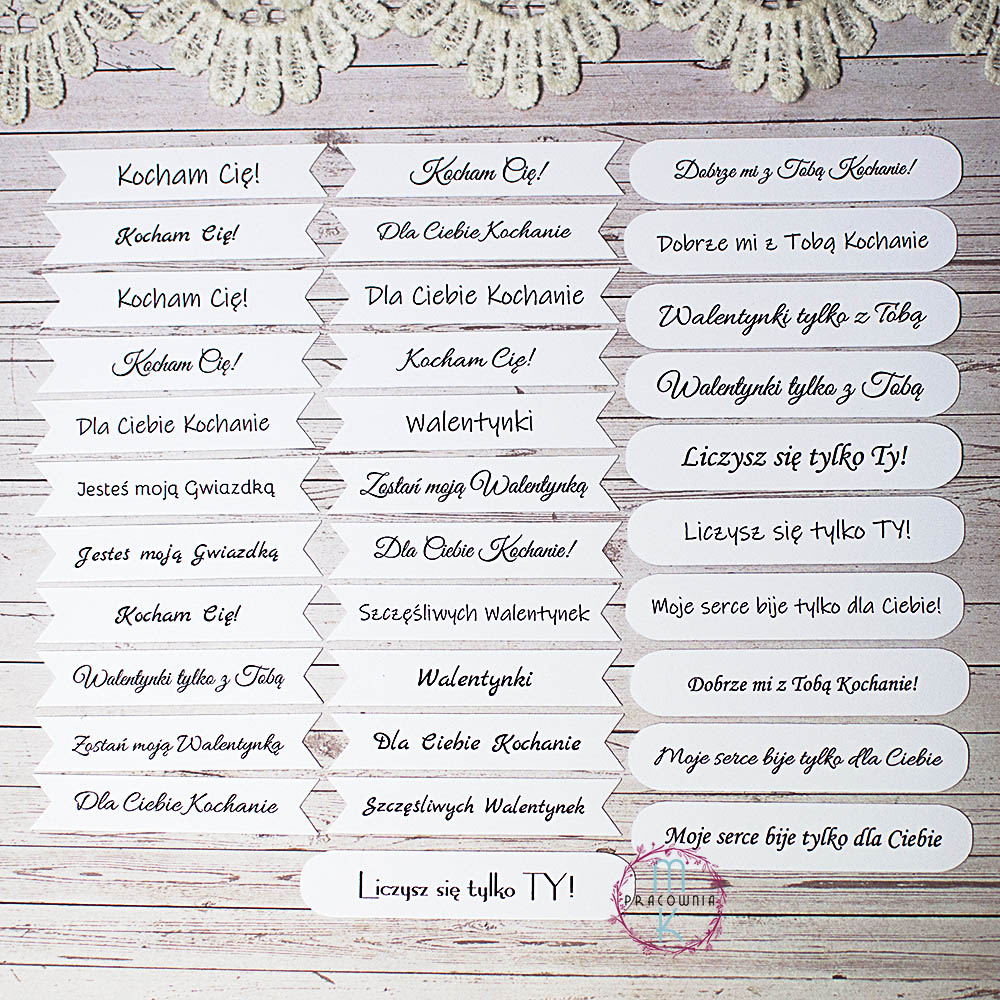 Kocham Cię!
Kocham Cię!
Kocham Cię!
Kocham Cię!
Dla Ciebie Kochanie
Jesteś moją Gwiazdką
Jesteś moją Gwiazdką
Kocham Cię!
Walentynki tylko z Tobą
Zostań moją Walentynką
Dla Ciebie Kochanie
Kocham Cię!
Dla Ciebie Kochanie
Dla Ciebie Kochanie
Kocham Cię!
Walentynki
Zostań moją Walentynką
Dla Ciebie Kochanie!
Szczęśliwych Walentynek
Walentynki
Dla Ciebie Kochanie
Szczęśliwych Walentynek
Dobrze mi z Tobą Kochanie!
Dobrze mi z Tobą Kochanie
Walentynki tylko z Tobą
Walentynki tylko z Tobą
Liczysz się tylko Ty!
Liczysz się tylko TY!
Moje serce bije tylko dla Ciebie!
Dobrze mi z Tobą Kochanie!
Moje serce bije tylko dla Ciebie
Moje serce bije tylko dla Ciebie
Liczysz się tylko TY!
M
PRACOWNIA
K